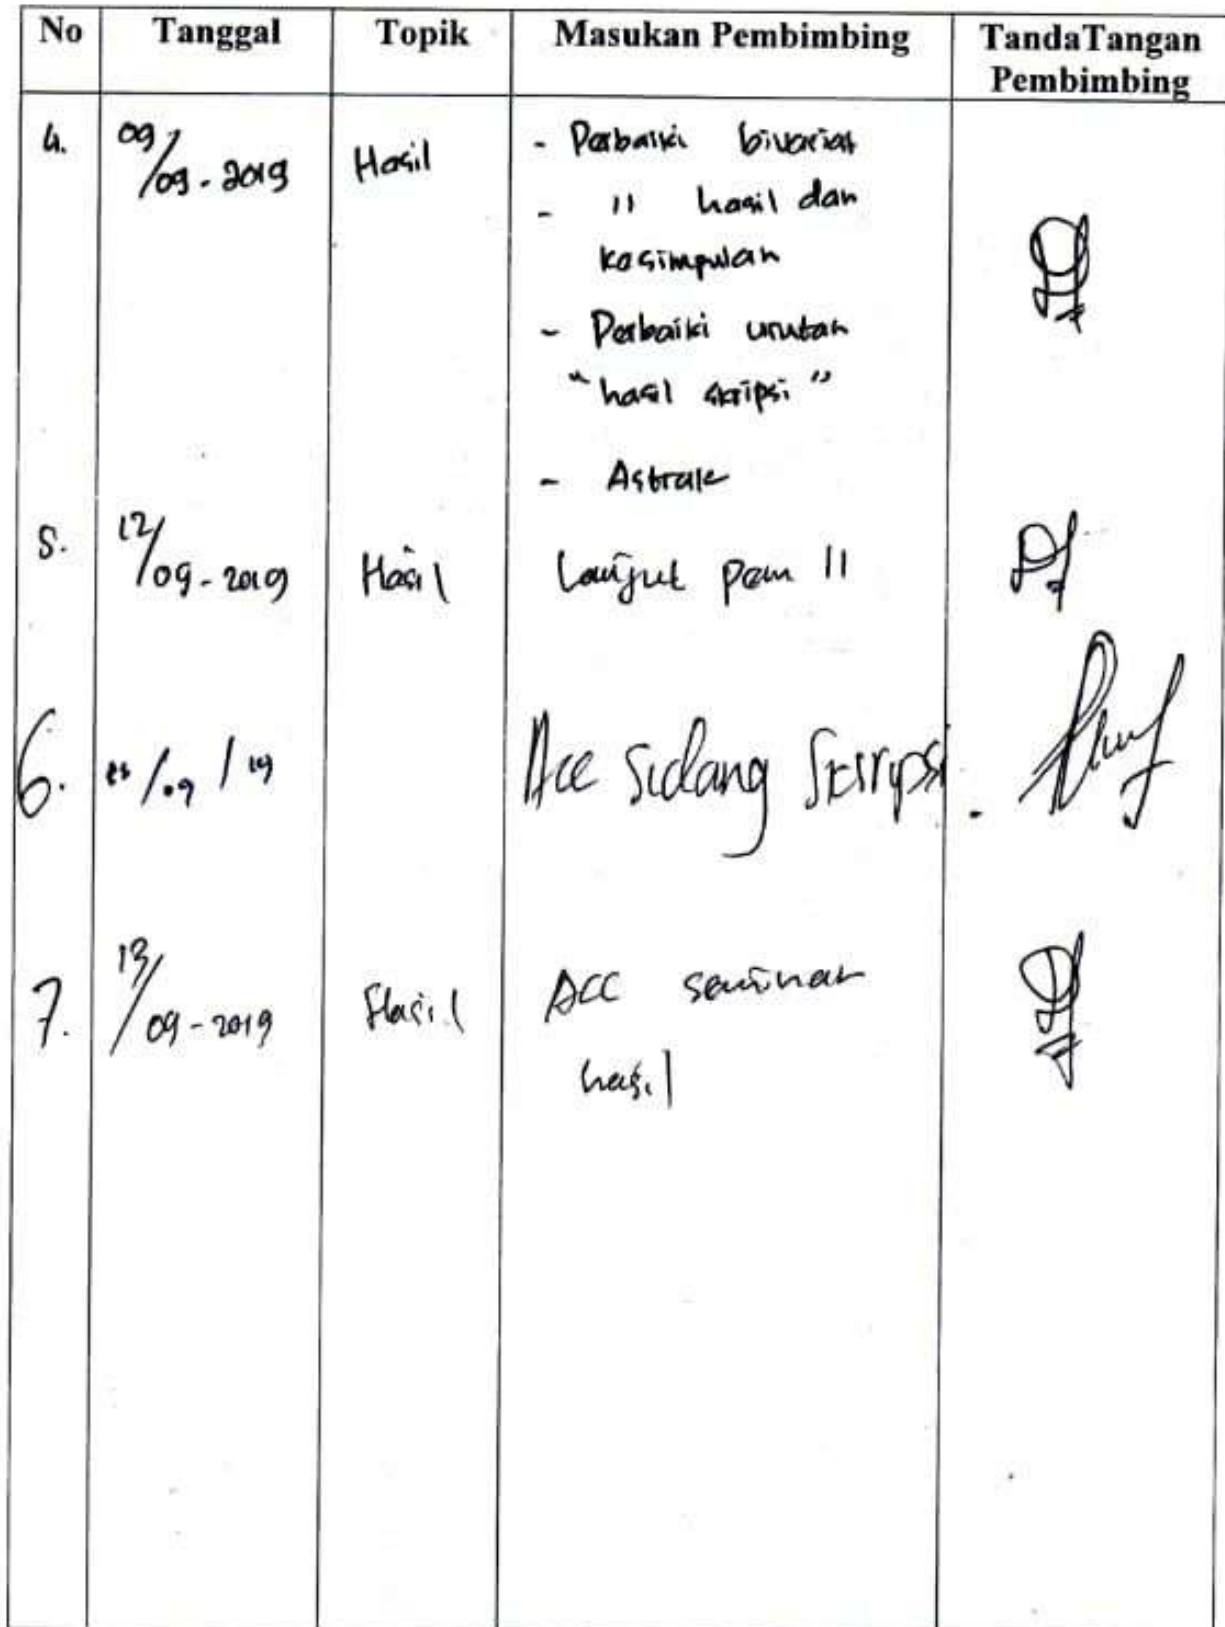 No Tanggal Topik Masukan Pembimbing TandaTangan
Pembimbing
4. 09/09-2019 Hasil - Perbaiki bivariat
- " hasil dan
kesimpulan
- Perbaiki urutan
"hasil skripsi"
- Astrak
5. 12/09-2019 Hasil Lanjut pem II
6. /09/19 Acc Sidang Skripsi.
7. 13/09-2019 Hasil ACC seminar
hasil